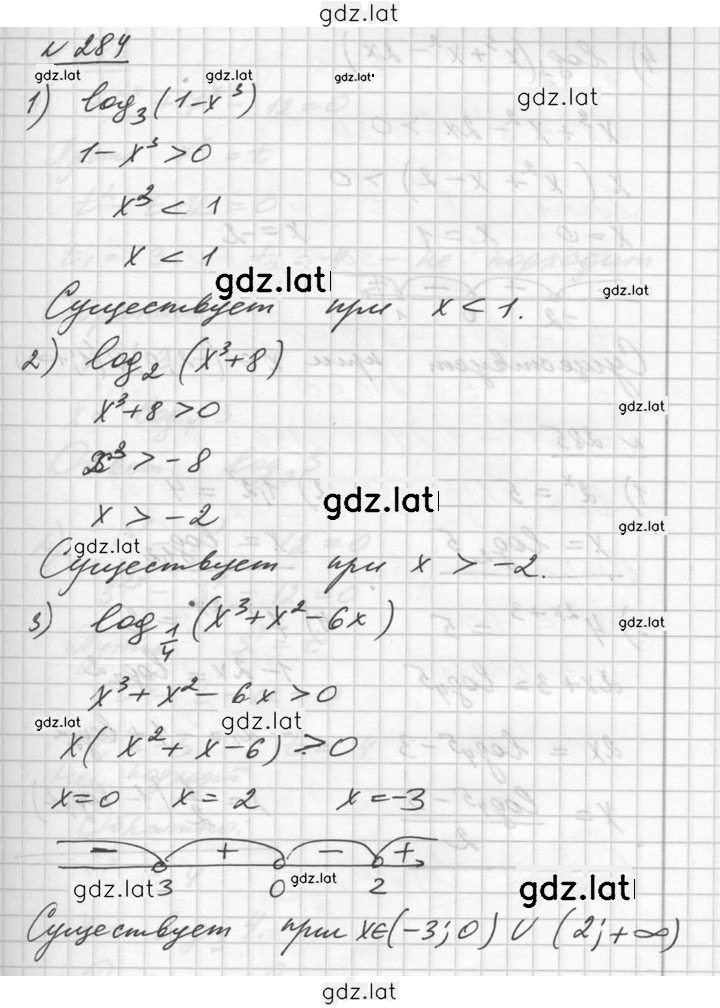 gdz.lat
№ 284
gdz.lat gdz.lat gdz.lat
1) log₃(1-x³) gdz.lat
1-x³>0
x³<1
x<1
gdz.lat gdz.lat
Существует при x<1.
2) log₂(x³+8)
x³+8>0 gdz.lat
x³>-8
gdz.lat
x>-2 gdz.lat
gdz.lat
Существует при x>-2.
3) log_{1/4}(x³+x²-6x) gdz.lat
x³+x²-6x>0
gdz.lat gdz.lat
x(x²+x-6)>0
x=0 x=2 x=-3
- + - +
gdz.lat 3 0 gdz.lat 2 gdz.lat
Существует при x∈(-3;0)∪(2;+∞)
gdz.lat